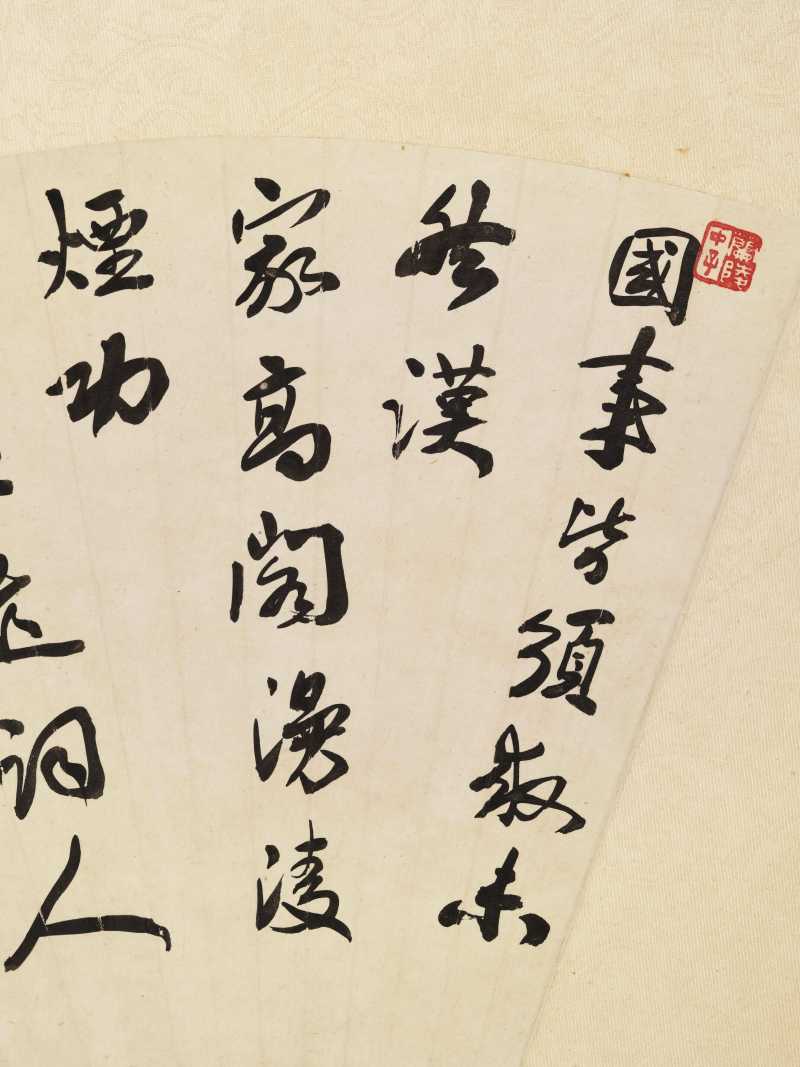 蘭陵
國事皆須救未
然漢
家高閣漫凌
煙功
詞人